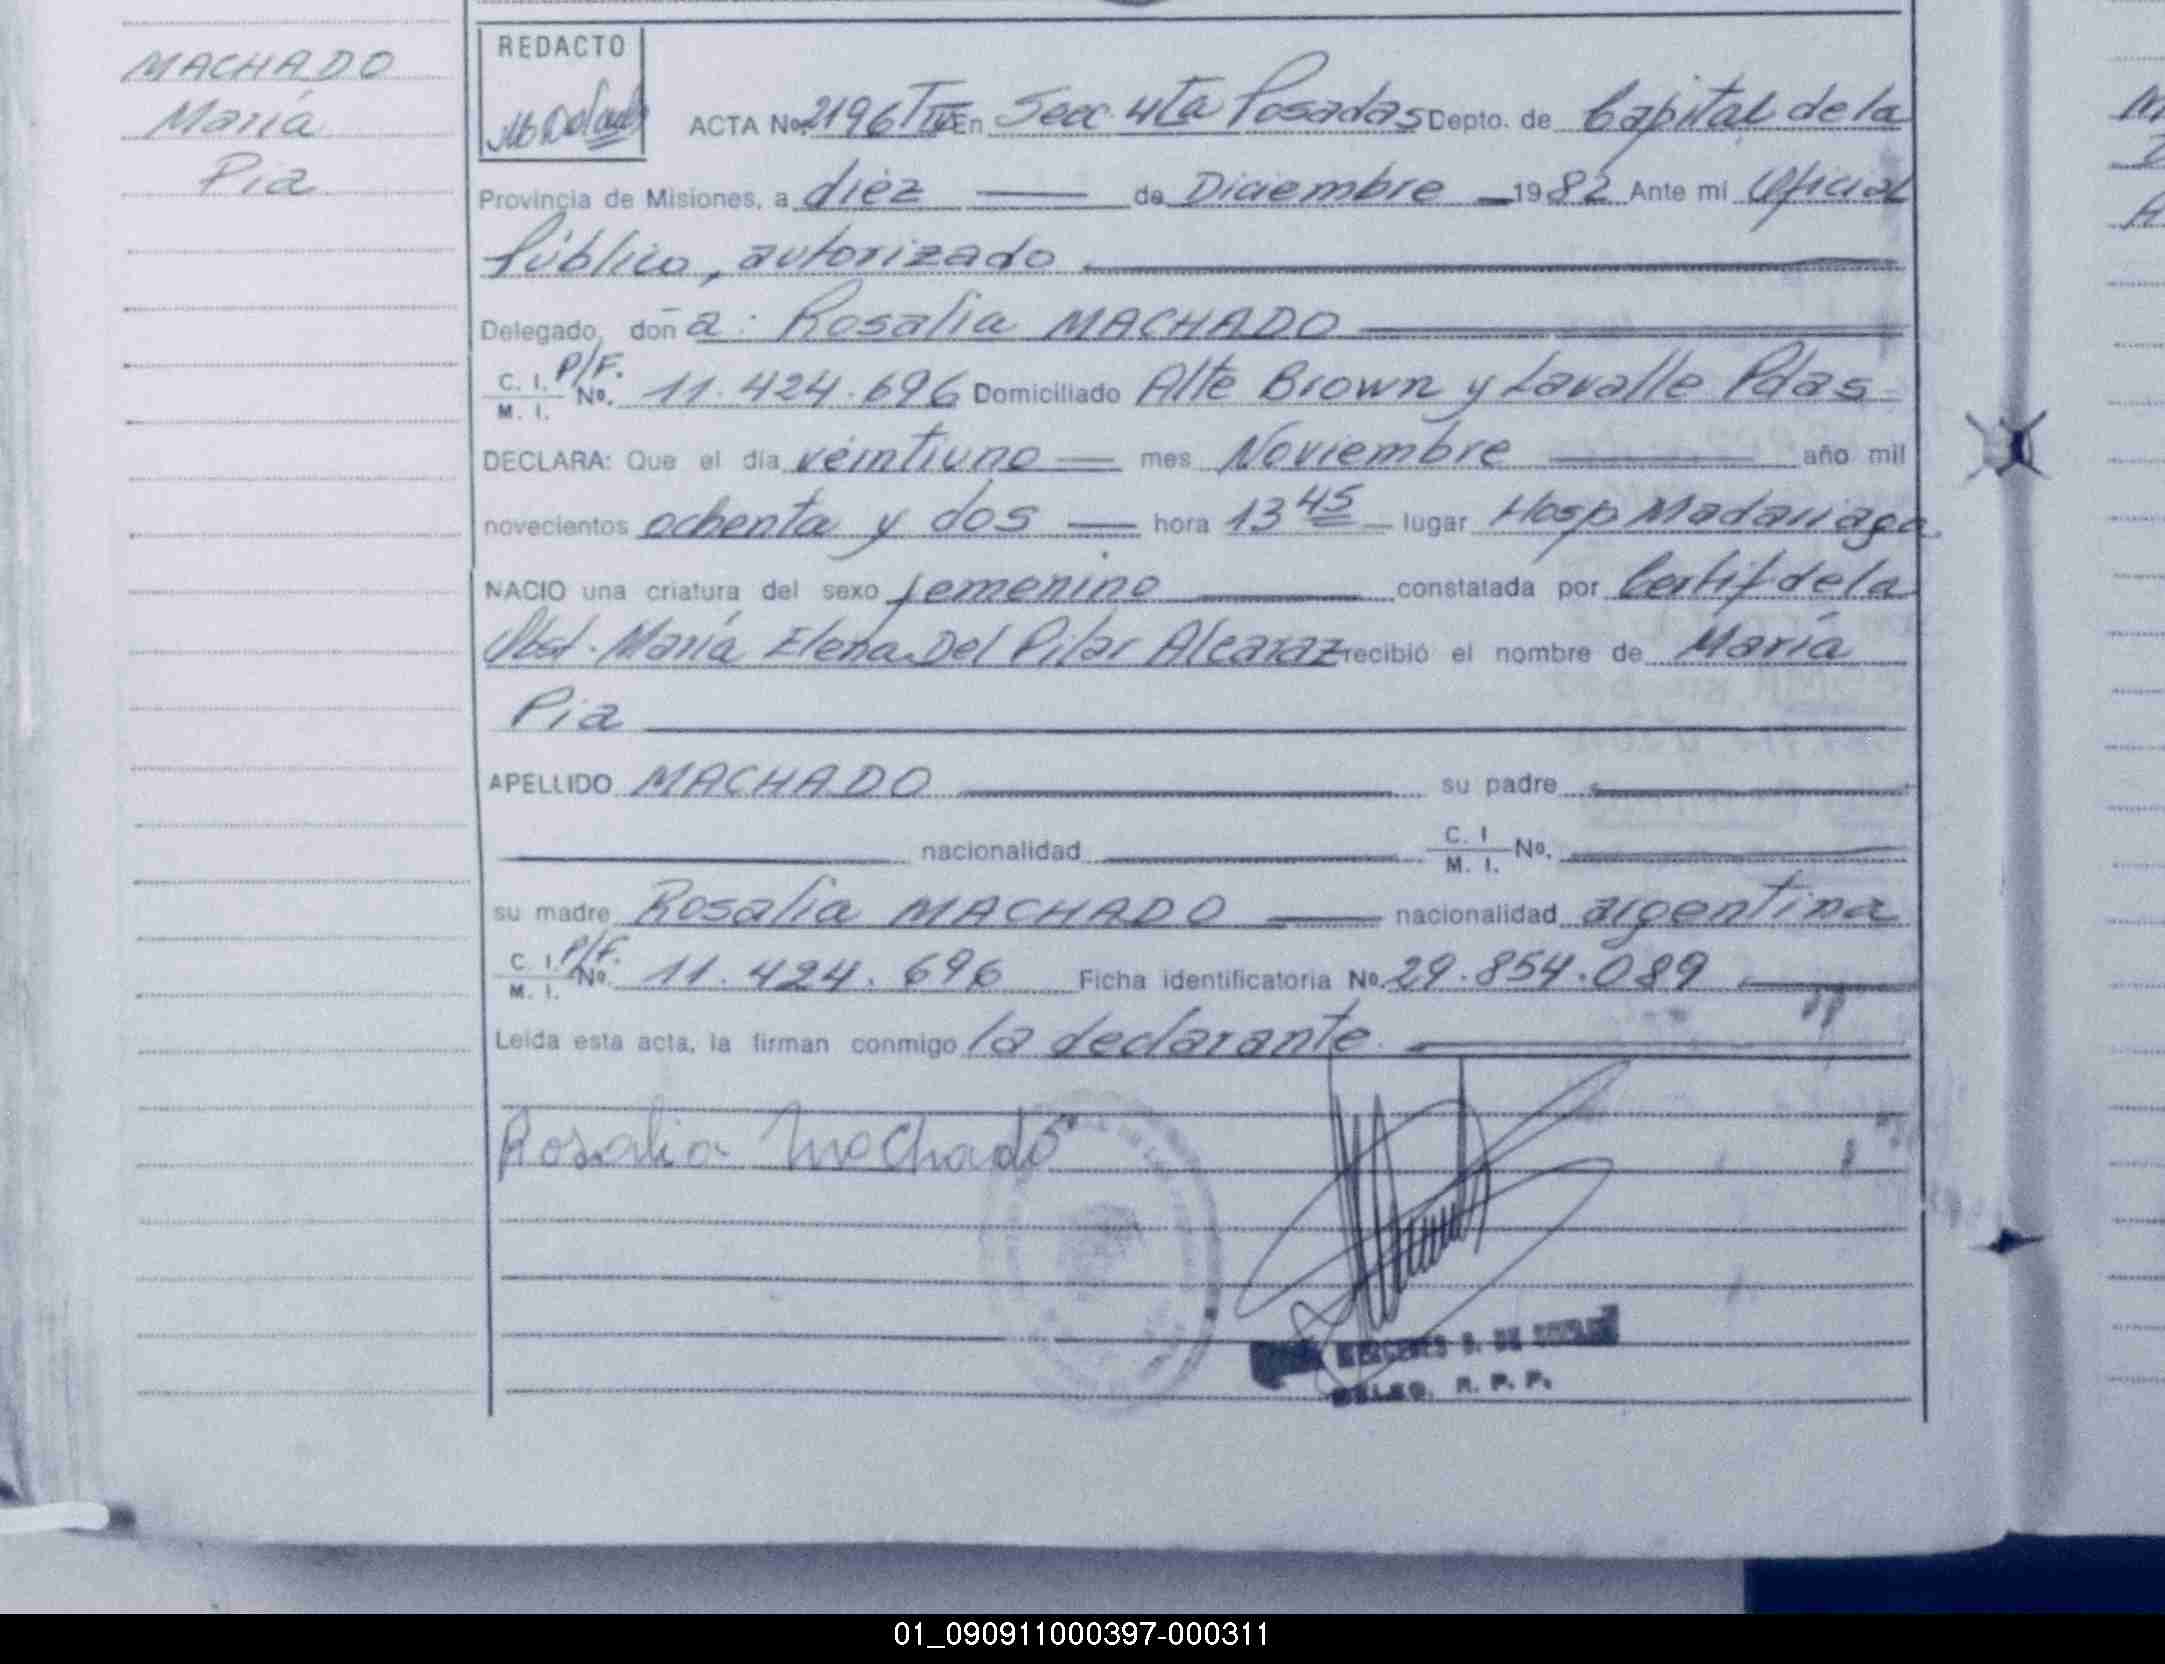 MACHADO
María
Pia
REDACTO
ACTA No. 2196 T IV En Secc. 4ta Posadas Depto. de Capital de la
Provincia de Misiones, a diez de Diciembre 1982 Ante mi Oficial
Público, autorizado
Delegado, doña: Rosalia MACHADO
C. I. / M. I. P/F. No. 11.424.696 Domiciliado Alte Brown y Lavalle Pdas
DECLARA: Que el día veintiuno mes Noviembre año mil
novecientos ochenta y dos hora 13 45 lugar Hosp Madariaga
NACIO una criatura del sexo femenino constatada por Certif de la
Obst. María Elena Del Pilar Alcaraz recibió el nombre de María
Pia
APELLIDO MACHADO su padre
nacionalidad C. I / M. I. No.
su madre Rosalia MACHADO nacionalidad argentina
C. I. / M. I. P/F. No. 11.424.696 Ficha identificatoria No. 29.854.089
Leída esta acta, la firman conmigo la declarante.
Rosalia Machado
MERCEDES DE
DELEG. R. P. P.
01_090911000397-000311